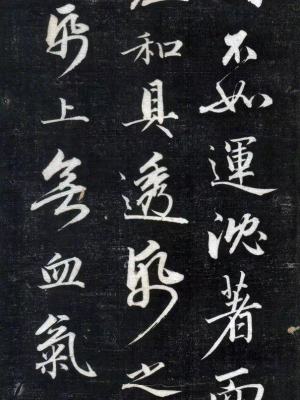 不如運沈著而
和具透紙之
紙上無血氣